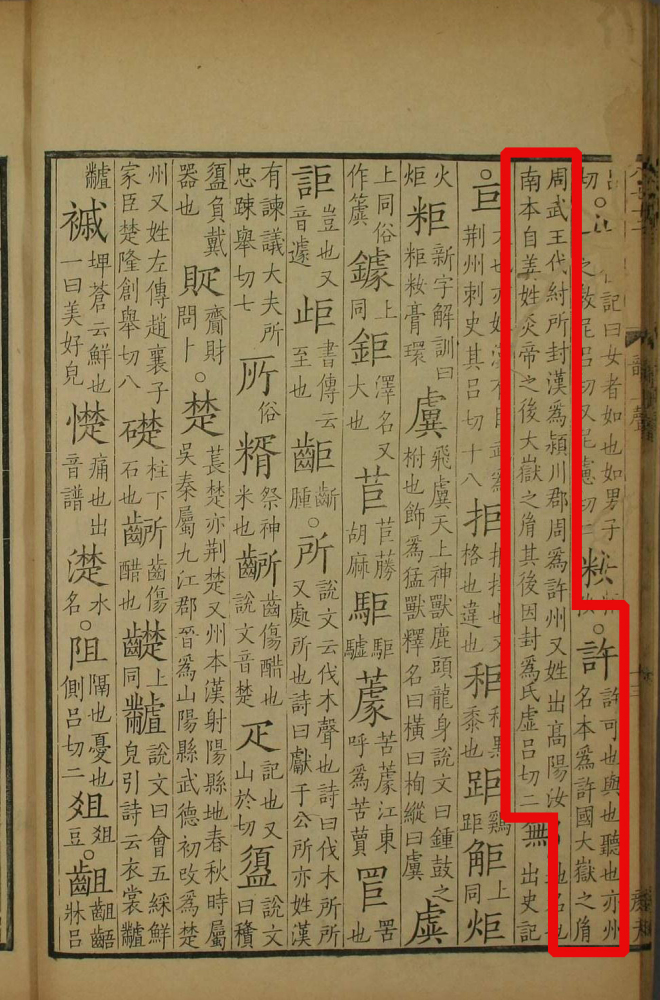 記曰女者如也如男子之教尼呂切又尼慮切二籹。許許可也與也聽也亦州名本為許國大嶽之胤
周武王代紂所封漢為潁川郡周為許州又姓出高陽汝南本自姜姓炎帝之後大嶽之胤其後因封為氏虛呂切二鄦地名也出史記
。巨大也亦姓漢有巨武為荆州刺史其呂切十八拒捍拒也又格也違也秬秬黑黍也距鷄距𧣒上同炬
火炬粔新字解訓曰粔籹膏環虡飛虡天上神獸鹿頭龍身說文曰鍾鼓之柎也飾為猛獸釋名曰橫曰栒縱曰虡虡
上同俗作簴鐻上同鉅澤名又大也苣苣藤胡麻駏駏驉蕖苦蕖江東呼為苦蕒罟也
詎豈也又音遽岠書傳云至也齗腫。所說文云伐木聲也詩曰伐木所所又處所也詩曰獻于公所亦姓漢
有諫議大夫所忠踈舉切七𠩄俗糈祭神米也齭齒傷醋也說文音楚疋記也又山於切𥂔說文曰𥂔
𥂔負戴器也𧵍齎財問卜。楚萇楚亦荆楚又州本漢射陽縣地春秋時屬吳秦屬九江郡晉為山陽縣武德初改為楚
州又姓左傳趙襄子家臣楚隆創舉切八礎柱下石也齭齒傷醋也齼上同䊝說文曰會五綵鮮皃引詩云衣裳䊝
䊝䙘埤蒼云鮮也一曰美好皃憷痛也出音譜濋水名。阻隔也憂也側呂切二俎俎豆。齟齟齬牀呂